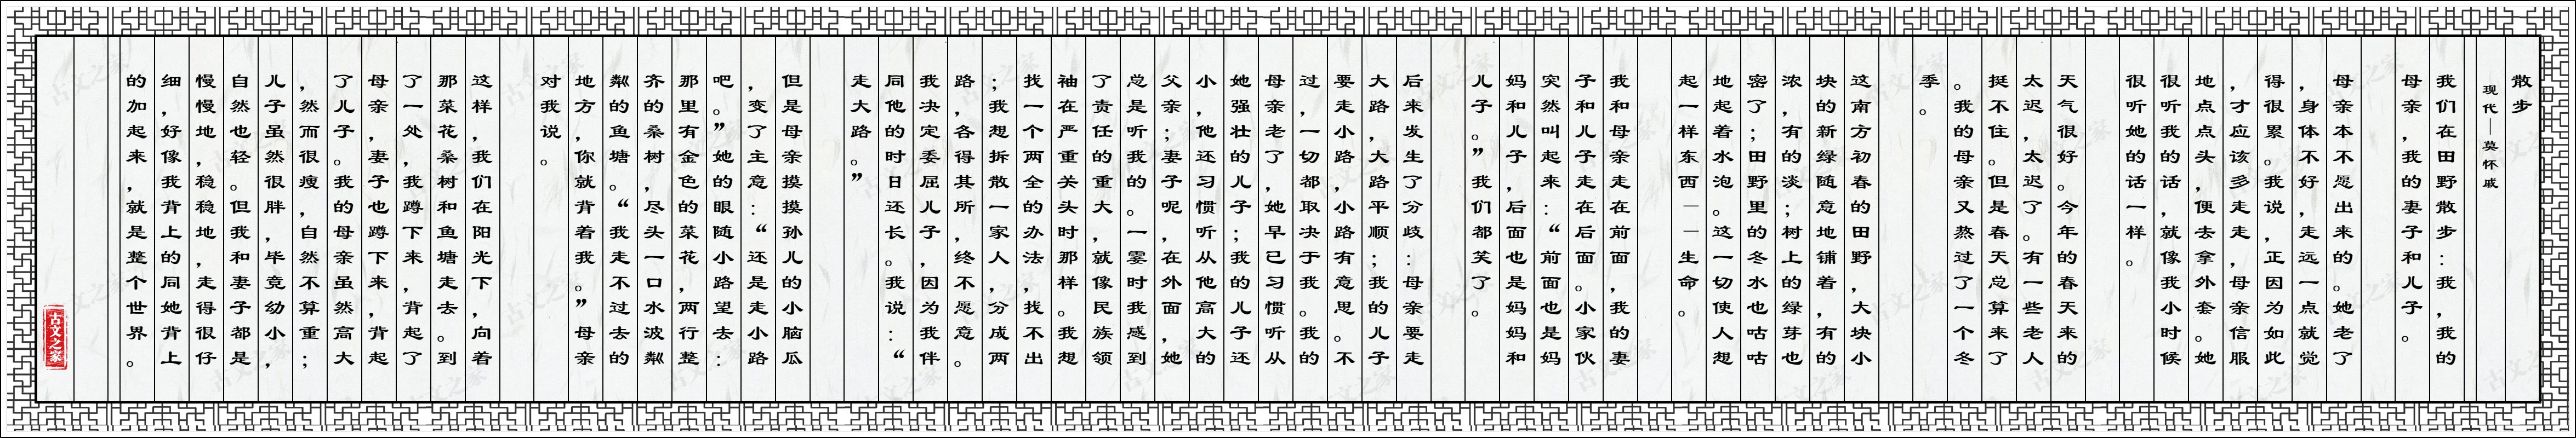 散步
现代—莫怀戚
我们在田野散步:我,我的
母亲,我的妻子和儿子。
母亲本不愿出来的。她老了
,身体不好,走远一点就觉
得很累。我说,正因为如此
,才应该多走走,母亲信服
地点点头,便去拿外套。她
很听我的话,就像我小时候
很听她的话一样。
天气很好。今年的春天来的
太迟,太迟了。有一些老人
挺不住。但是春天总算来了
。我的母亲又熬过了一个冬
季。
这南方初春的田野,大块小
块的新绿随意地铺着,有的
浓,有的淡;树上的绿芽也
密了;田野里的冬水也咕咕
地起着水泡。这一切使人想
起一样东西——生命。
我和母亲走在前面,我的妻
子和儿子走在后面。小家伙
突然叫起来:“前面也是妈
妈和儿子,后面也是妈妈和
儿子。”我们都笑了。
后来发生了分歧:母亲要走
大路,大路平顺;我的儿子
要走小路,小路有意思。不
过,一切都取决于我。我的
母亲老了,她早已习惯听从
她强壮的儿子;我的儿子还
小,他还习惯听从他高大的
父亲;妻子呢,在外面,她
总是听我的。一霎时我感到
了责任的重大,就像民族领
袖在严重关头时那样。我想
找一个两全的办法,找不出
;我想拆散一家人,分成两
路,各得其所,终不愿意。
我决定委屈儿子,因为我伴
同他的时日还长。我说:“
走大路。”
但是母亲摸摸孙儿的小脑瓜
,变了主意:“还是走小路
吧。”她的眼随小路望去:
那里有金色的菜花,两行整
齐的桑树,尽头一口水波粼
粼的鱼塘。“我走不过去的
地方,你就背着我。”母亲
对我说。
这样,我们在阳光下,向着
那菜花桑树和鱼塘走去。到
了一处,我蹲下来,背起了
母亲,妻子也蹲下来,背起
了儿子。我的母亲虽然高大
,然而很瘦,自然不算重;
儿子虽然很胖,毕竟幼小,
自然也轻。但我和妻子都是
慢慢地,稳稳地,走得很仔
细,好像我背上的同她背上
的加起来,就是整个世界。
古文之家